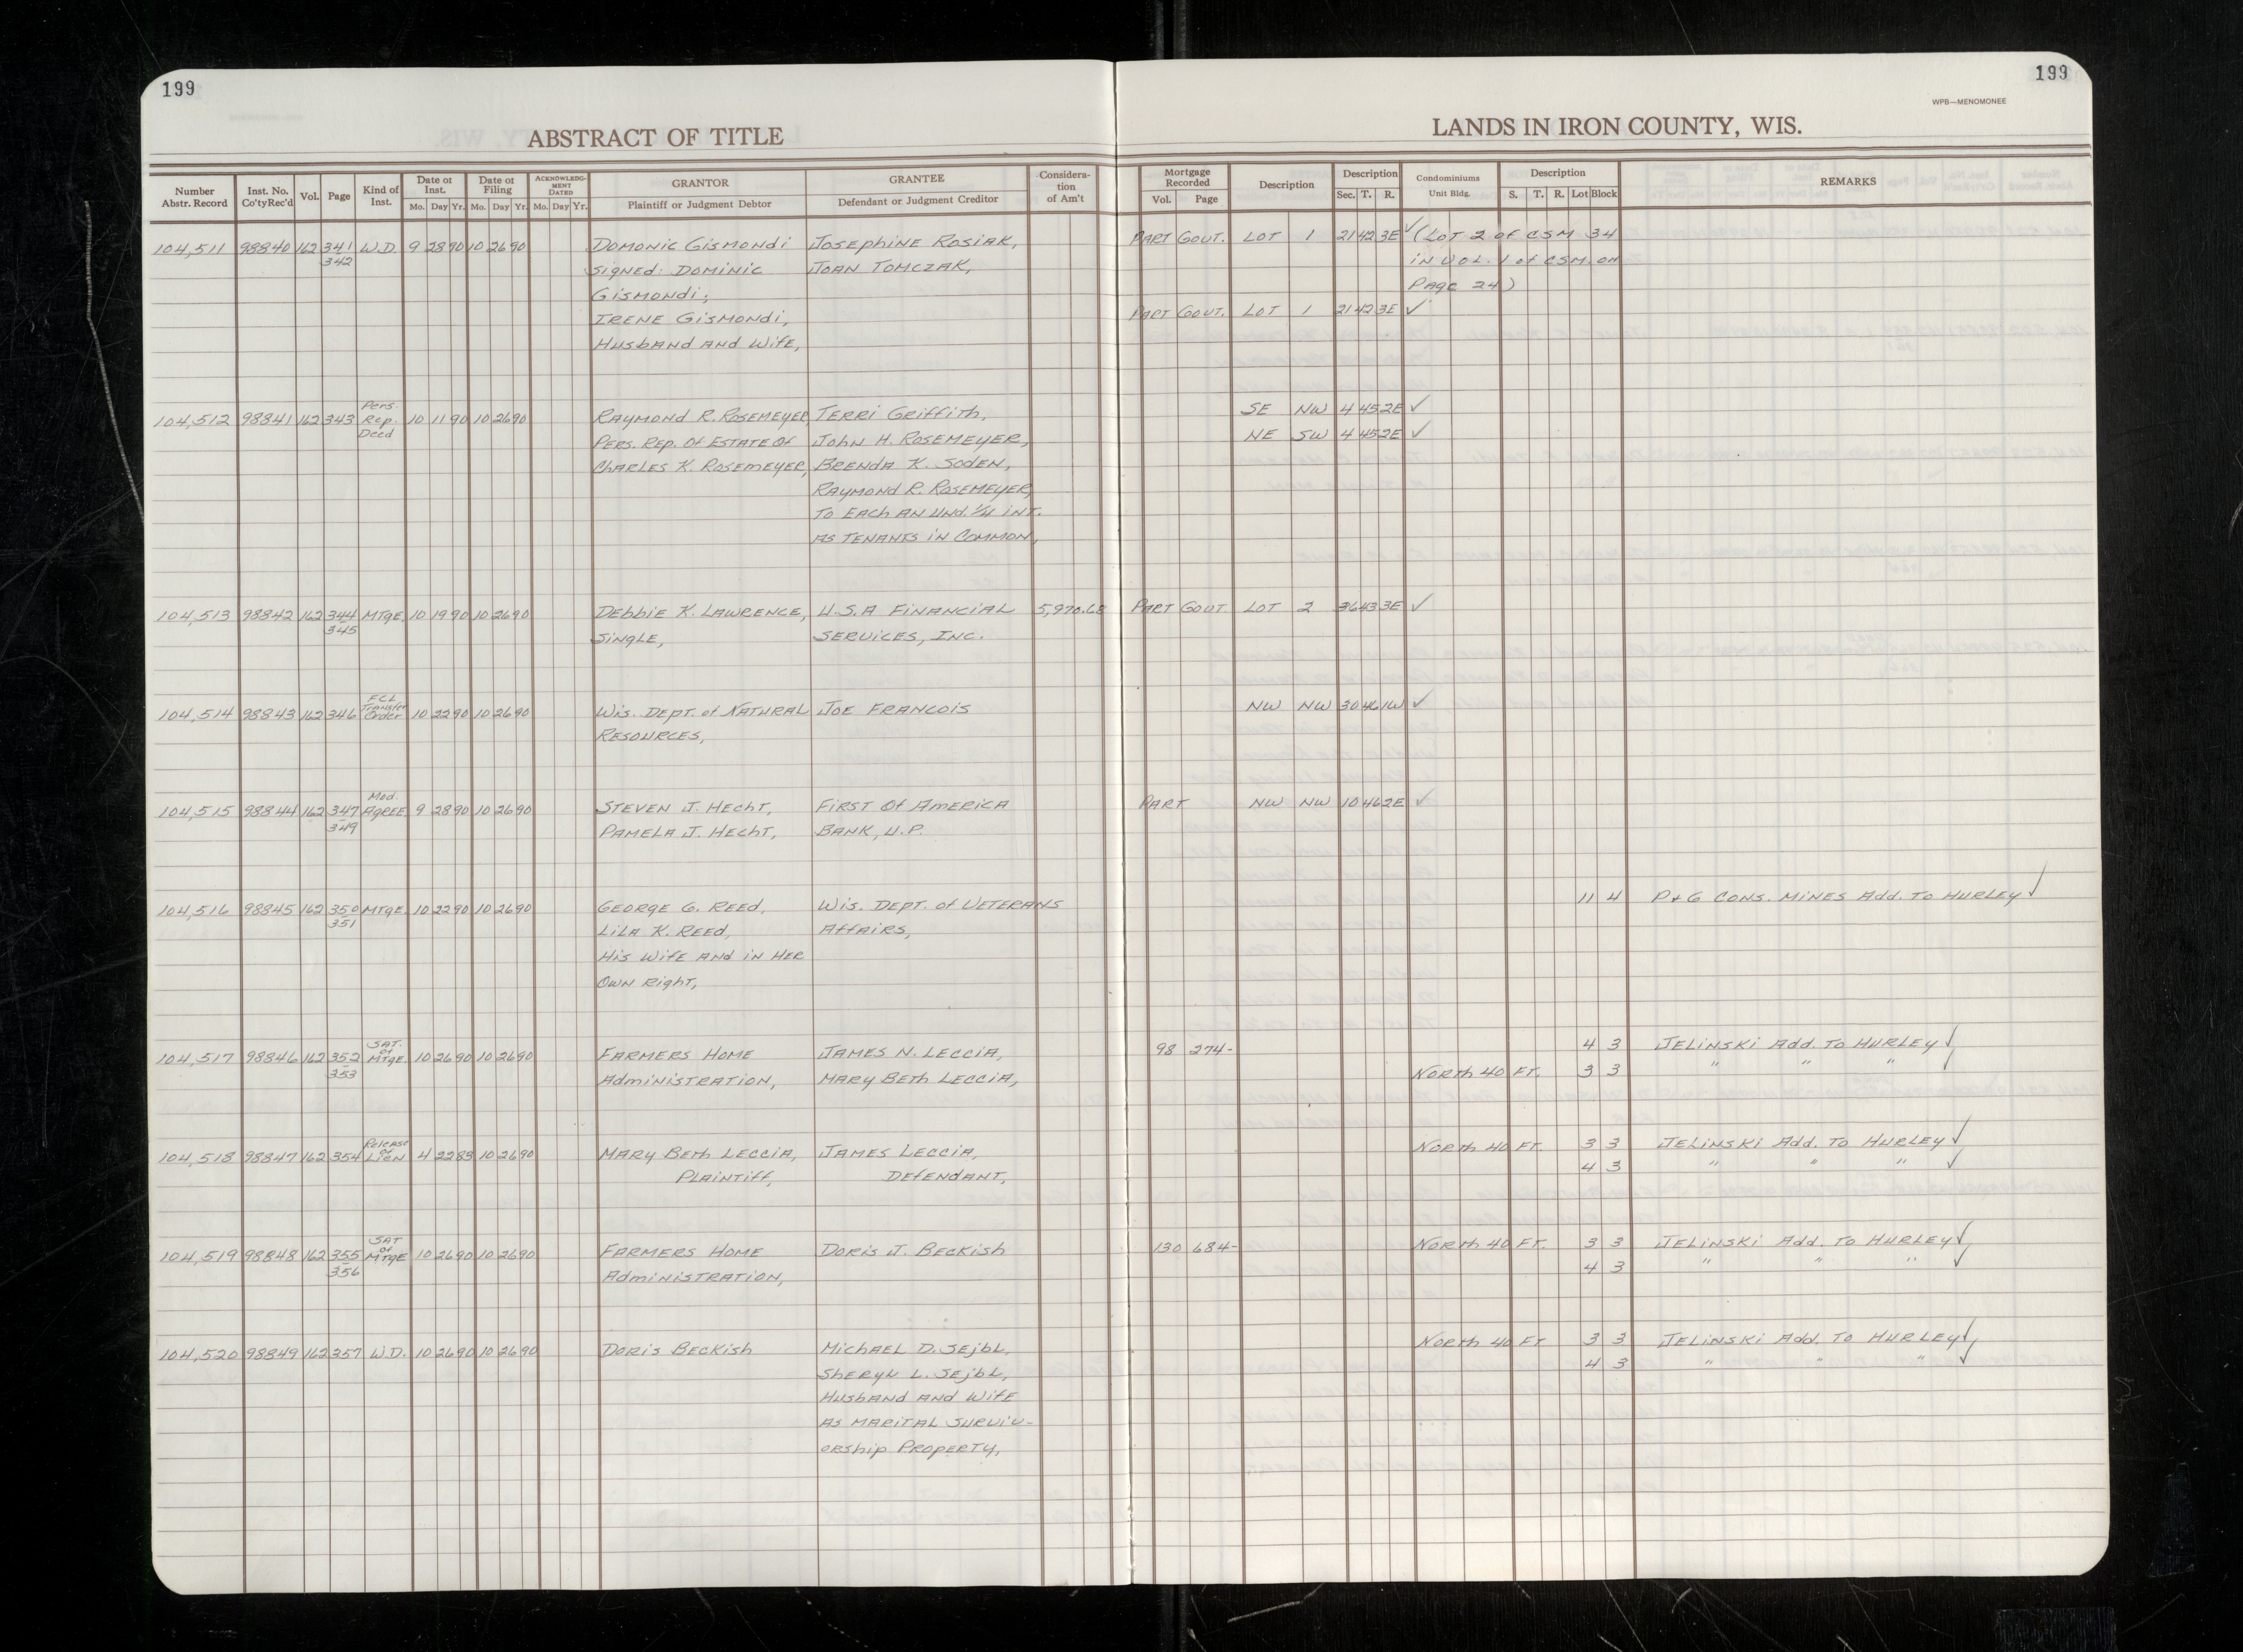 199
199
WPB—MENOMONEE
ABSTRACT OF TITLE
LANDS IN IRON COUNTY, WIS.
Number Abstr. Record | Inst. No. Co'ty Rec'd | Vol. | Page | Kind of Inst. | Date of Inst. Mo. Day Yr. | Date of Filing Mo. Day Yr. | ACKNOWLEDGMENT DATED Mo. Day Yr. | GRANTOR Plaintiff or Judgment Debtor | GRANTEE Defendant or Judgment Creditor | Consideration of Am't | Mortgage Recorded Vol. Page | Description | Description Sec. T. R. | Condominiums Unit Bldg. | Description S. T. R. Lot Block | REMARKS
104,511 98840 162 341 W.D. 9 28 90 10 26 90 Domonic Gismondi Josephine Rosiak, Part Gout. Lot 1 21 42 3E ✓ (Lot 2 of CSM 34
342 Signed: Dominic Joan Tomczak, in Vol. 1 of CSM on
Gismondi; Page 24)
Irene Gismondi, Part Gout. Lot 1 21 42 3E ✓
Husband and Wife,
104,512 98841 162 343 Pers. Rep. Deed 10 11 90 10 26 90 Raymond R. Rosemeyer, Terri Griffith, SE NW 4 45 2E ✓
Pers. Rep. of Estate of John H. Rosemeyer, NE SW 4 45 2E ✓
Charles K. Rosemeyer, Brenda K. Soden,
Raymond R. Rosemeyer,
To Each an Und. 1/4 int.
as Tenants in Common,
104,513 98842 162 344 Mtge. 10 19 90 10 26 90 Debbie K. Lawrence, U.S.A Financial 5,970.68 Part Gout Lot 2 36 43 3E ✓
345 Single, Services, Inc.
104,514 98843 162 346 FCL Transfer Order 10 22 90 10 26 90 Wis. Dept. of Natural Joe Francois NW NW 30 46 1W ✓
Resources,
104,515 98844 162 347 Mod. Agree 9 28 90 10 26 90 Steven J. Hecht, First of America Part NW NW 10 46 2E ✓
349 Pamela J. Hecht, Bank, U.P.
104,516 98845 162 350 Mtge. 10 22 90 10 26 90 George G. Reed, Wis. Dept. of Veterans 11 4 P & G Cons. Mines Add. To Hurley ✓
351 Lila K. Reed, Affairs,
His Wife and in Her
Own Right,
104,517 98846 162 352 Sat. of Mtge 10 26 90 10 26 90 Farmers Home James N. Leccia, 98 274- 4 3 Jelinski Add. To Hurley ✓
353 Administration, Mary Beth Leccia, North 40 Ft. 3 3 " " " ✓
104,518 98847 162 354 Release of Lien 4 22 83 10 26 90 Mary Beth Leccia, James Leccia, North 40 Ft. 3 3 Jelinski Add. To Hurley ✓
Plaintiff, Defendant, 4 3 " " " ✓
104,519 98848 162 355 Sat of Mtge 10 26 90 10 26 90 Farmers Home Doris J. Beckish 130 684- North 40 Ft. 3 3 Jelinski Add. To Hurley ✓
356 Administration, 4 3 " " " ✓
104,520 98849 162 357 W.D. 10 26 90 10 26 90 Doris Beckish Michael D. Sejbl, North 40 Ft 3 3 Jelinski Add. To Hurley ✓
Sheryl L. Sejbl, 4 3 " " " ✓
Husband and Wife
as Marital Surviv-
orship Property,